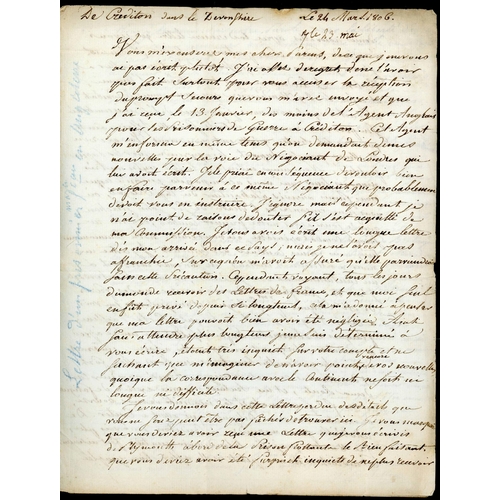 De Créditon dans le Devonshire Le 24 Mars 1806.
R le 23 mai
Vous m'excuserez mes chers Parens, de ce que je ne vous
ai pas écrit plutôt. J'ai assez de regret, de ne l'avoir
pas fait Surtout pour vous accuser la réception
du prompt Secours que vous m'avez envoyé et que
j'ai reçu le 13 Janvier, des mains de l'Agent Anglais
pour les Prisonniers de Guerre à Créditon. Cet Agent
m'informa en même tems qu'on demandait de mes
nouvelles par la voie du Négociant de Londres qui
lui avoit écrit. Je le priai en conséquence de vouloir bien
en faire parvenir à ce même Négociant qui probablement
devoit vous en instruire. J'ignore mais cependant je
n'ai point de raisons de douter s'il s'est acquitté de
ma Commission. Je vous avois écrit une longue lettre
dès mon arrivée dans ce Pays, mais je ne l'avois pas
affranchie, parce qu'on m'avoit assuré qu'elle parviendroit
sans cette Précaution. Cependant voyant, tous les jours
du monde recevoir des Lettres de France, et que moi seul
en étoit privé depuis si longtems, cela m'a donné à penser
que ma lettre pouvoit bien avoir été négligée. Sans
attendre plus longtems je me suis déterminé à
vous écrire, étant très inquiet sur votre compte et ne
sachant que m'imaginer de n'avoir point encore de vos nouvelles
quoique la correspondance avec le Continent ne soit ni
longue ni difficile.
Je vous donnois dans cette Lettre perdue des détails que
vous ne serez peut être pas fâchés de trouver ici. Je vous marquois
que vous deviez avoir reçu une Lettre que je vous écrivis
de Plymouth à bord de la Prison flottante le Bienfaisant.
que vous deviez avoir été surpris et inquiets de ne plus recevoir
Lettre d'un